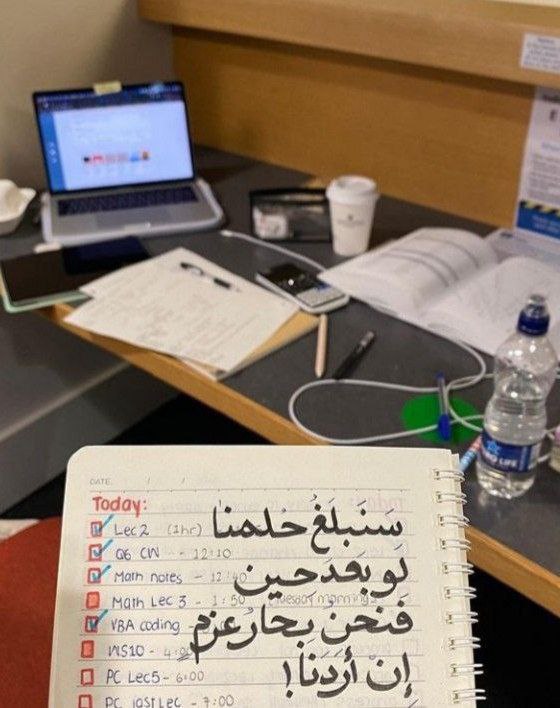 DATE: / /
Today:
Lec 2 (1hr)
Q6 CW - 12:10
Math notes - 12:40
Math Lec 3 - 1:50
VBA coding
WS10 - 4:00
PC Lec5 - 6:00
PC last Lec - 7:00
سَنَبلَغُ حُلمنا
لَو بَعدَ حين
فَنحنُ بِحارُ عَزمٍ
إن أَرَدنَا!